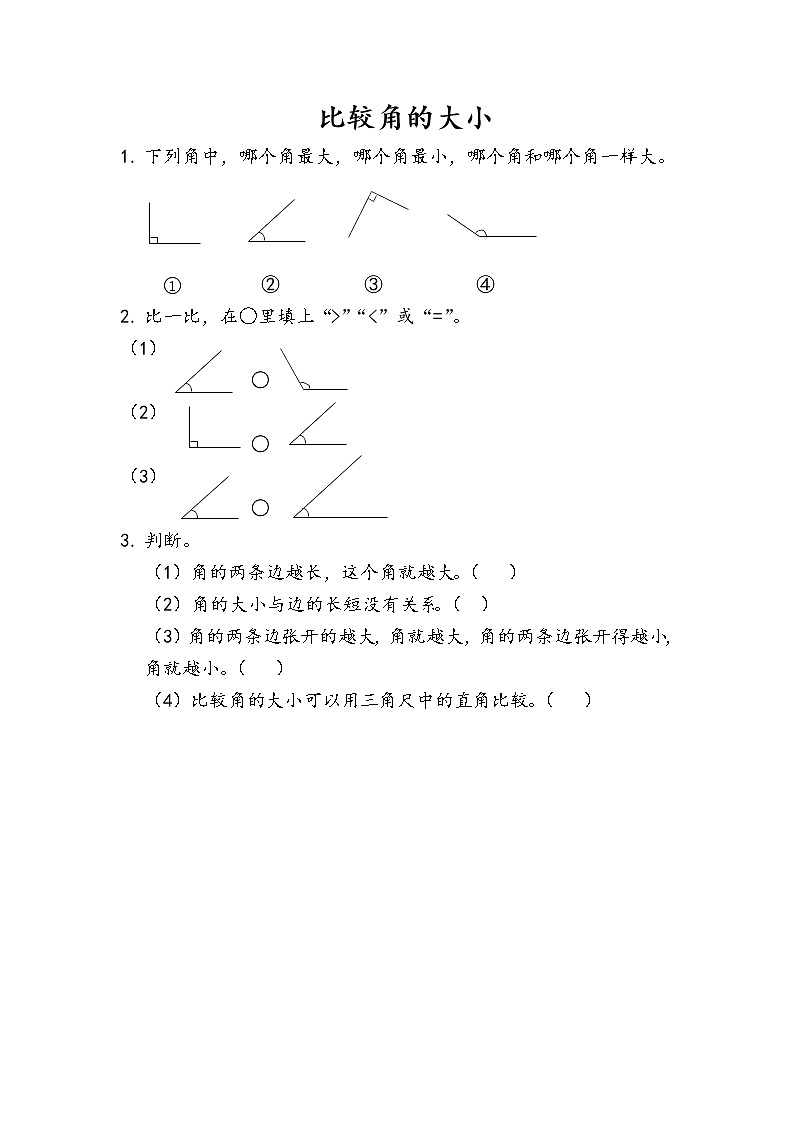 比较角的大小
1. 下列角中，哪个角最大，哪个角最小，哪个角和哪个角一样大。
① ② ③ ④
2. 比一比，在○里填上“>”“<”或“=”。
（1）
（2）
（3）
3. 判断。
（1）角的两条边越长，这个角就越大。（ ）
（2）角的大小与边的长短没有关系。（ ）
（3）角的两条边张开的越大，角就越大，角的两条边张开得越小，
角就越小。（ ）
（4）比较角的大小可以用三角尺中的直角比较。（ ）